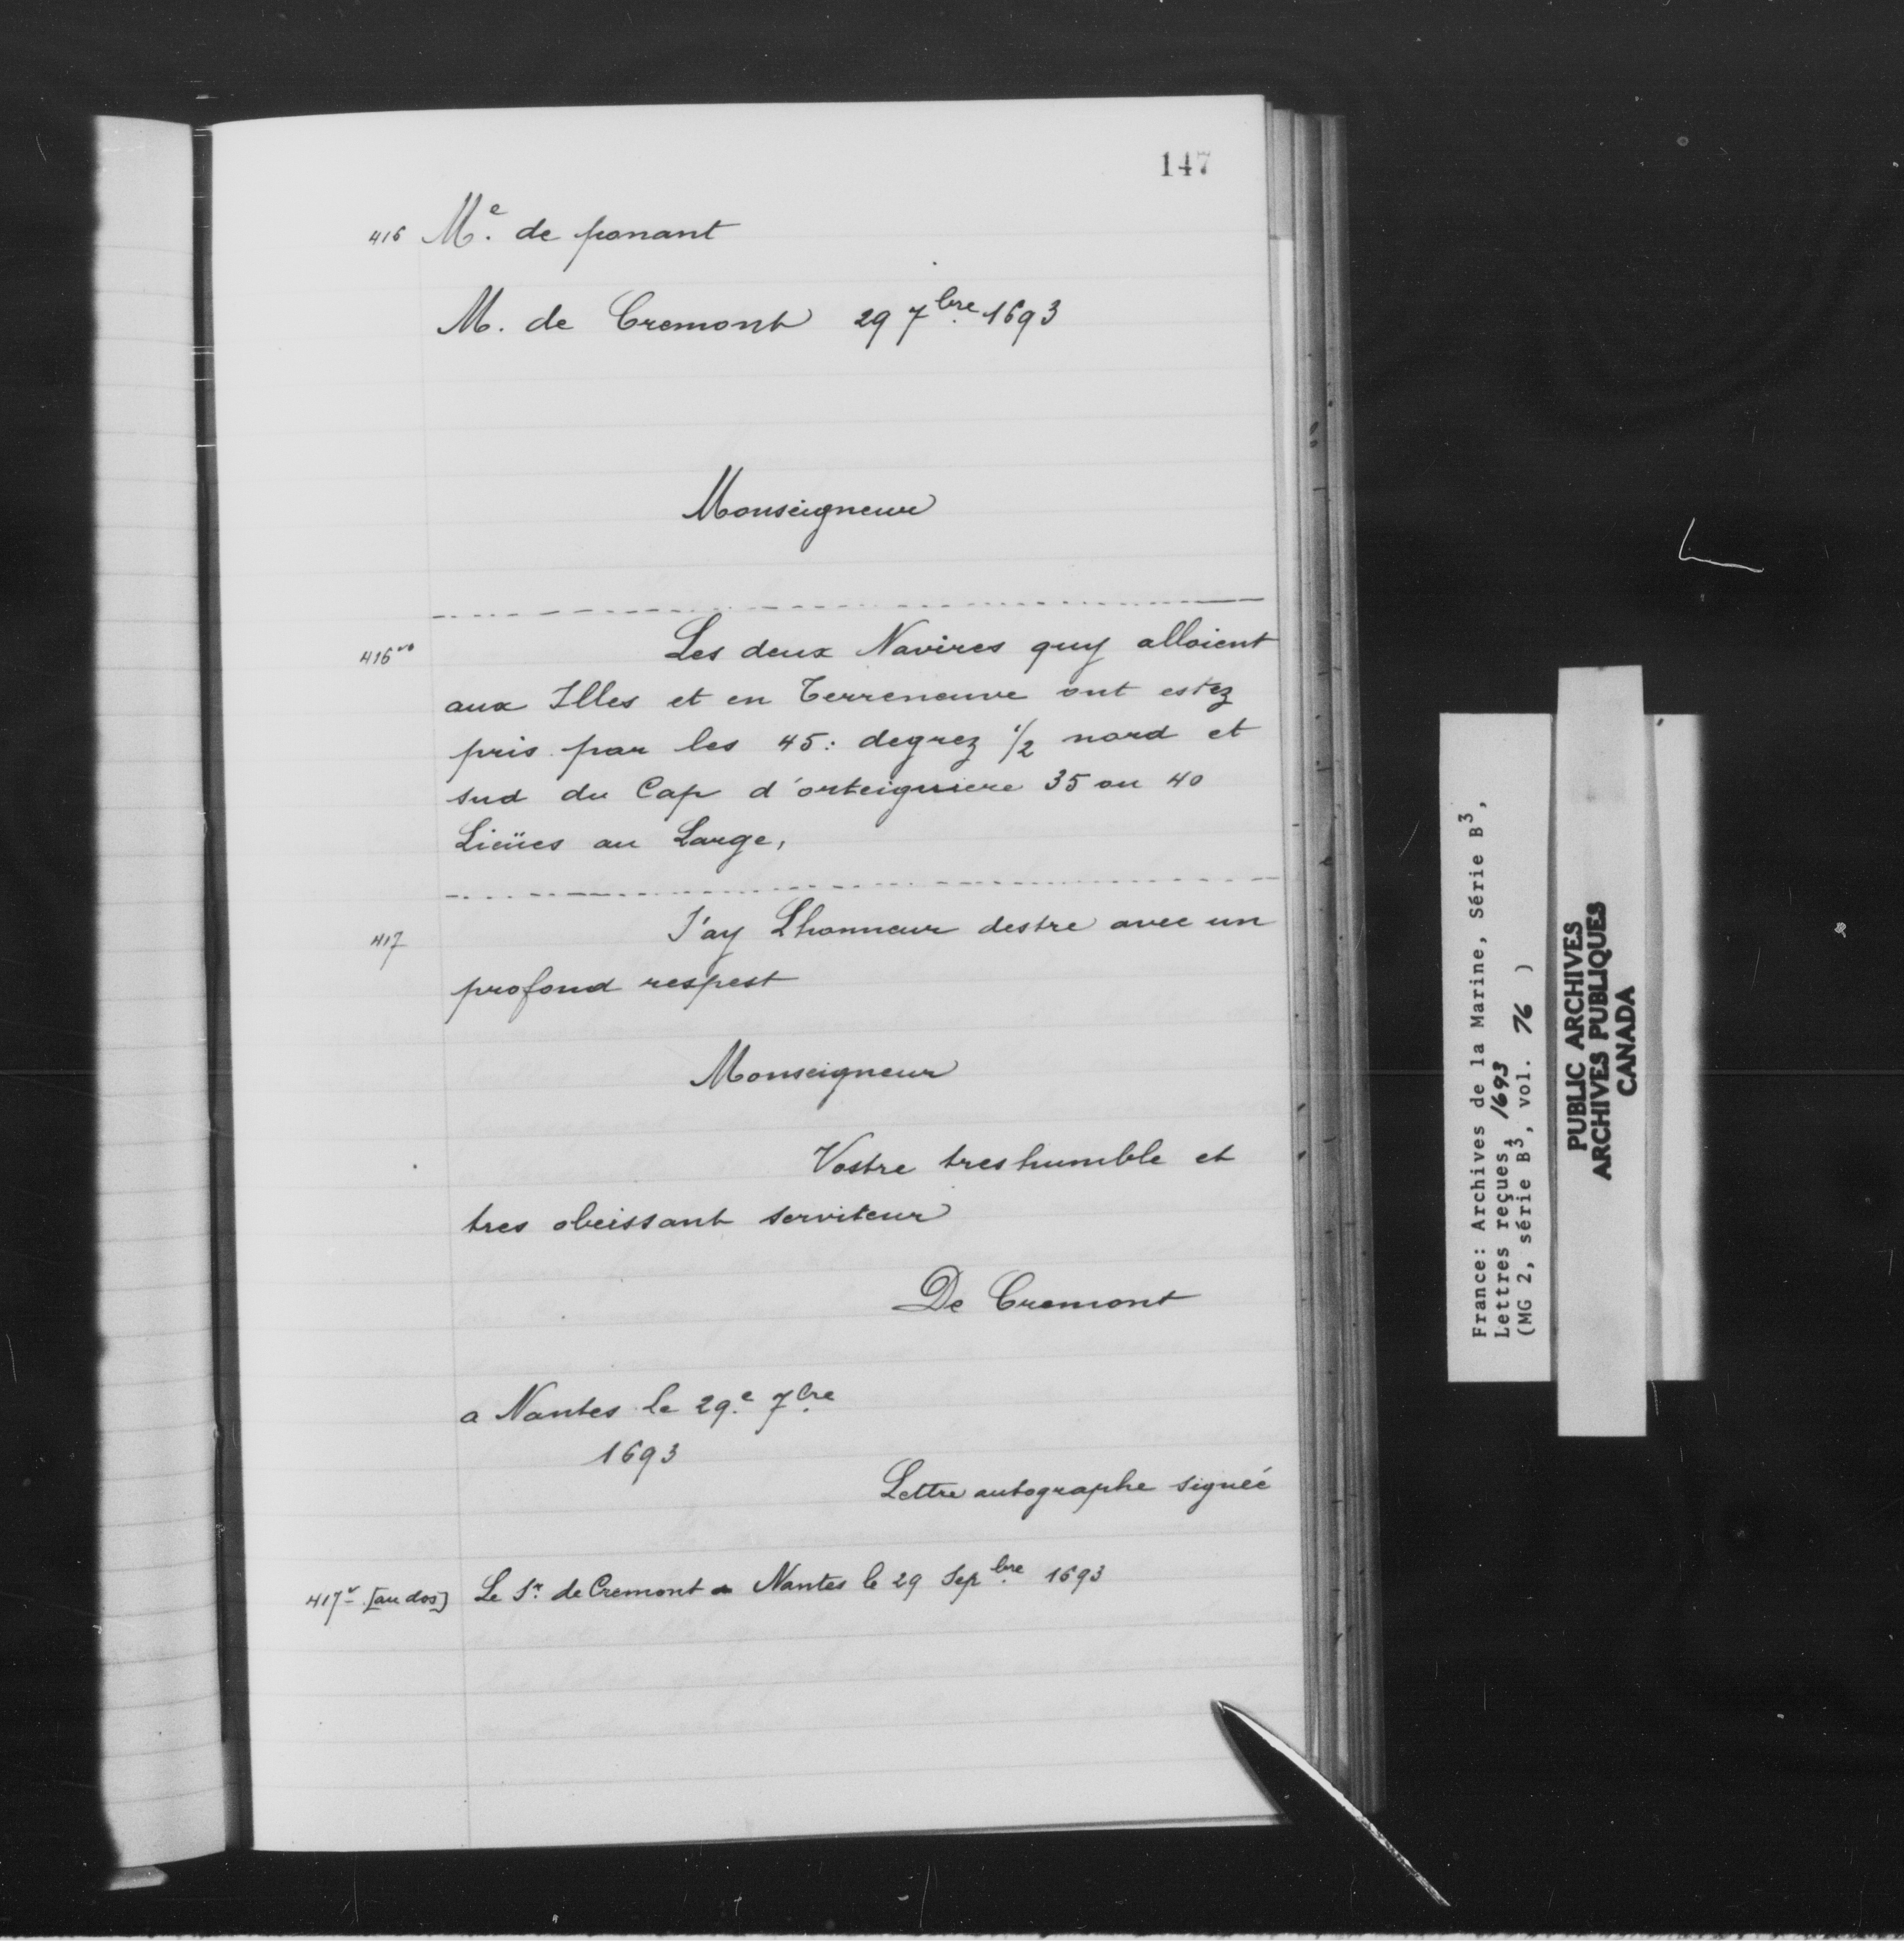 147
416 Mᵉ. de ponant
M. de Cremont 29 7bre 1693
Monseigneur
416vo Les deux Navires quy alloient
aux Illes et en Terreneuve ont estez
pris par les 45: degrez 1/2 nord et
sud du Cap d'orteiguiere 35 ou 40
Lieües au Large,
417 J'ay Lhonneur destre avec un
profond respest
Monseigneur
Vostre treshumble et
tres obeissant serviteur
De Cremont
a Nantes le 29.e 7bre
1693
Lettre autographe signée
417v [au dos] Le Sr. de Cremont a Nantes le 29 Sepbre 1693
France: Archives de la Marine, Série B3,
Lettres reçues, 1693
(MG 2, série B3, vol. 76 )
PUBLIC ARCHIVES
ARCHIVES PUBLIQUES
CANADA